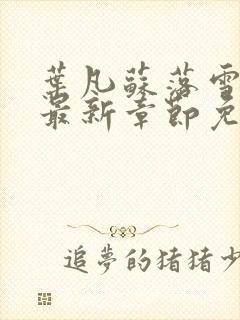 葉凡蘇落雪
最新章節免
追夢的猪猪少